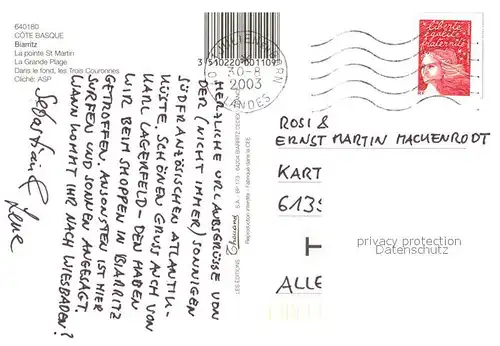 640180
CÔTE BASQUE
Biarritz
La pointe St Martin
La Grande Plage
Dans le fond, les Trois Couronnes
Cliché: ASP
3 510220 001109
30-8
2003
LANDES
liberté
égalité
fraternité
HERZLICHE URLAUBSGRÜSSE VON
DER (NICHT IMMER) SONNIGEN
SÜDFRANZÖSISCHEN ATLANTIK-
KÜSTE. SCHÖNEN GRUSS AUCH VON
KARL LAGERFELD - DEN HABEN
WIR BEIM SHOPPEN IN BIARRITZ
GETROFFEN. ANSONSTEN IST HIER
SURFEN UND SONNEN ANGESAGT.
WANN KOMMT IHR NACH WIESBADEN?
Sebastian &
Lene
LES ÉDITIONS
S.A. - BP 173 - 64204 BIARRITZ CEDEX
Reproduction interdite - Fabriqué dans la CEE
ROSI &
ERNST MARTIN MACKENRODT
KART
6135
T
ALLE
privacy protection
Datenschutz